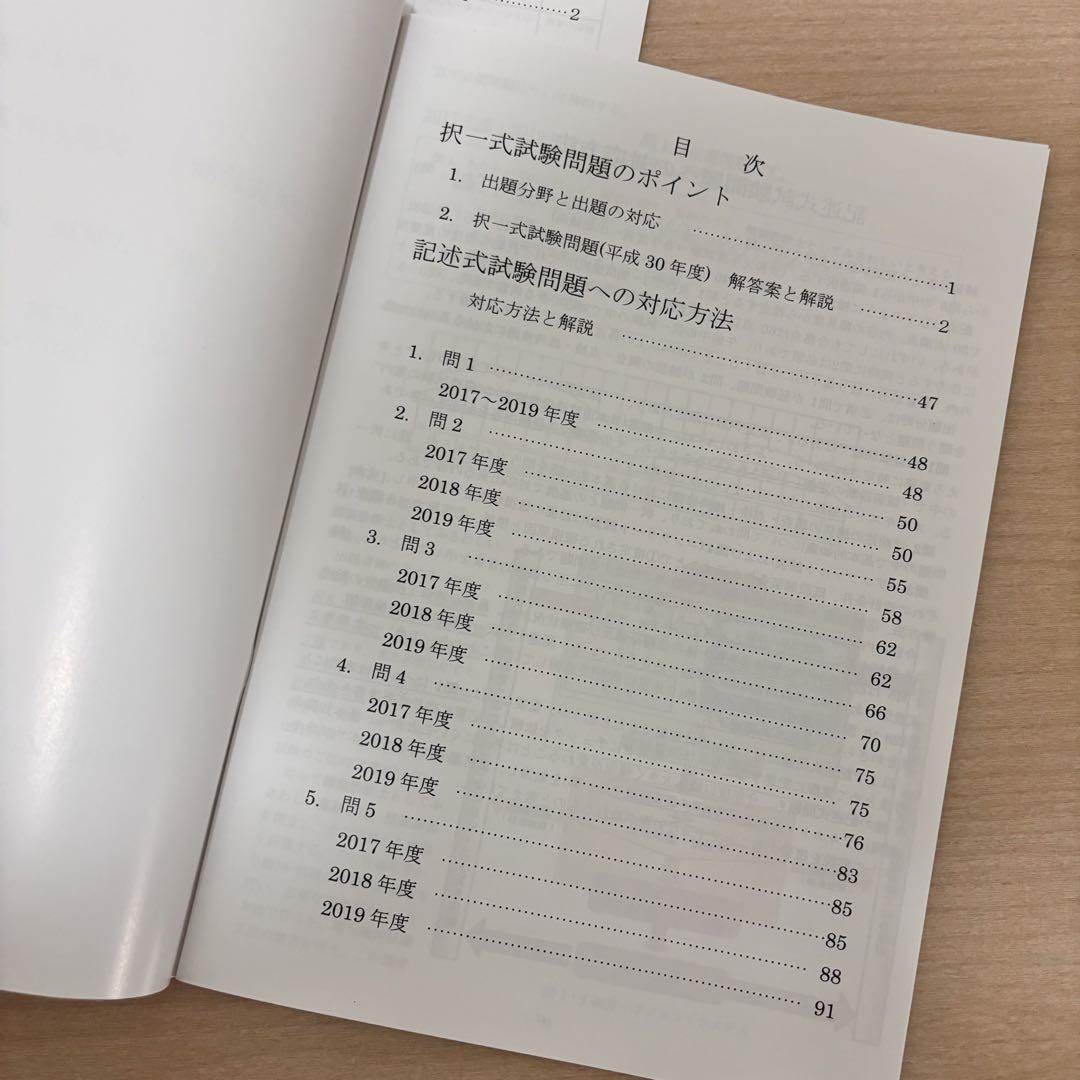 ……2
目 次
択一式試験問題のポイント
1. 出題分野と出題の対応 ……1
2. 択一式試験問題(平成 30 年度) 解答案と解説 ……2
記述式試験問題への対応方法
対応方法と解説 ……47
1. 問 1 ……48
2017〜2019 年度 ……48
2. 問 2 ……50
2017 年度 ……50
2018 年度 ……55
2019 年度 ……58
3. 問 3 ……62
2017 年度 ……62
2018 年度 ……66
2019 年度 ……70
4. 問 4 ……75
2017 年度 ……75
2018 年度 ……76
2019 年度 ……83
5. 問 5 ……85
2017 年度 ……85
2018 年度 ……88
2019 年度 ……91